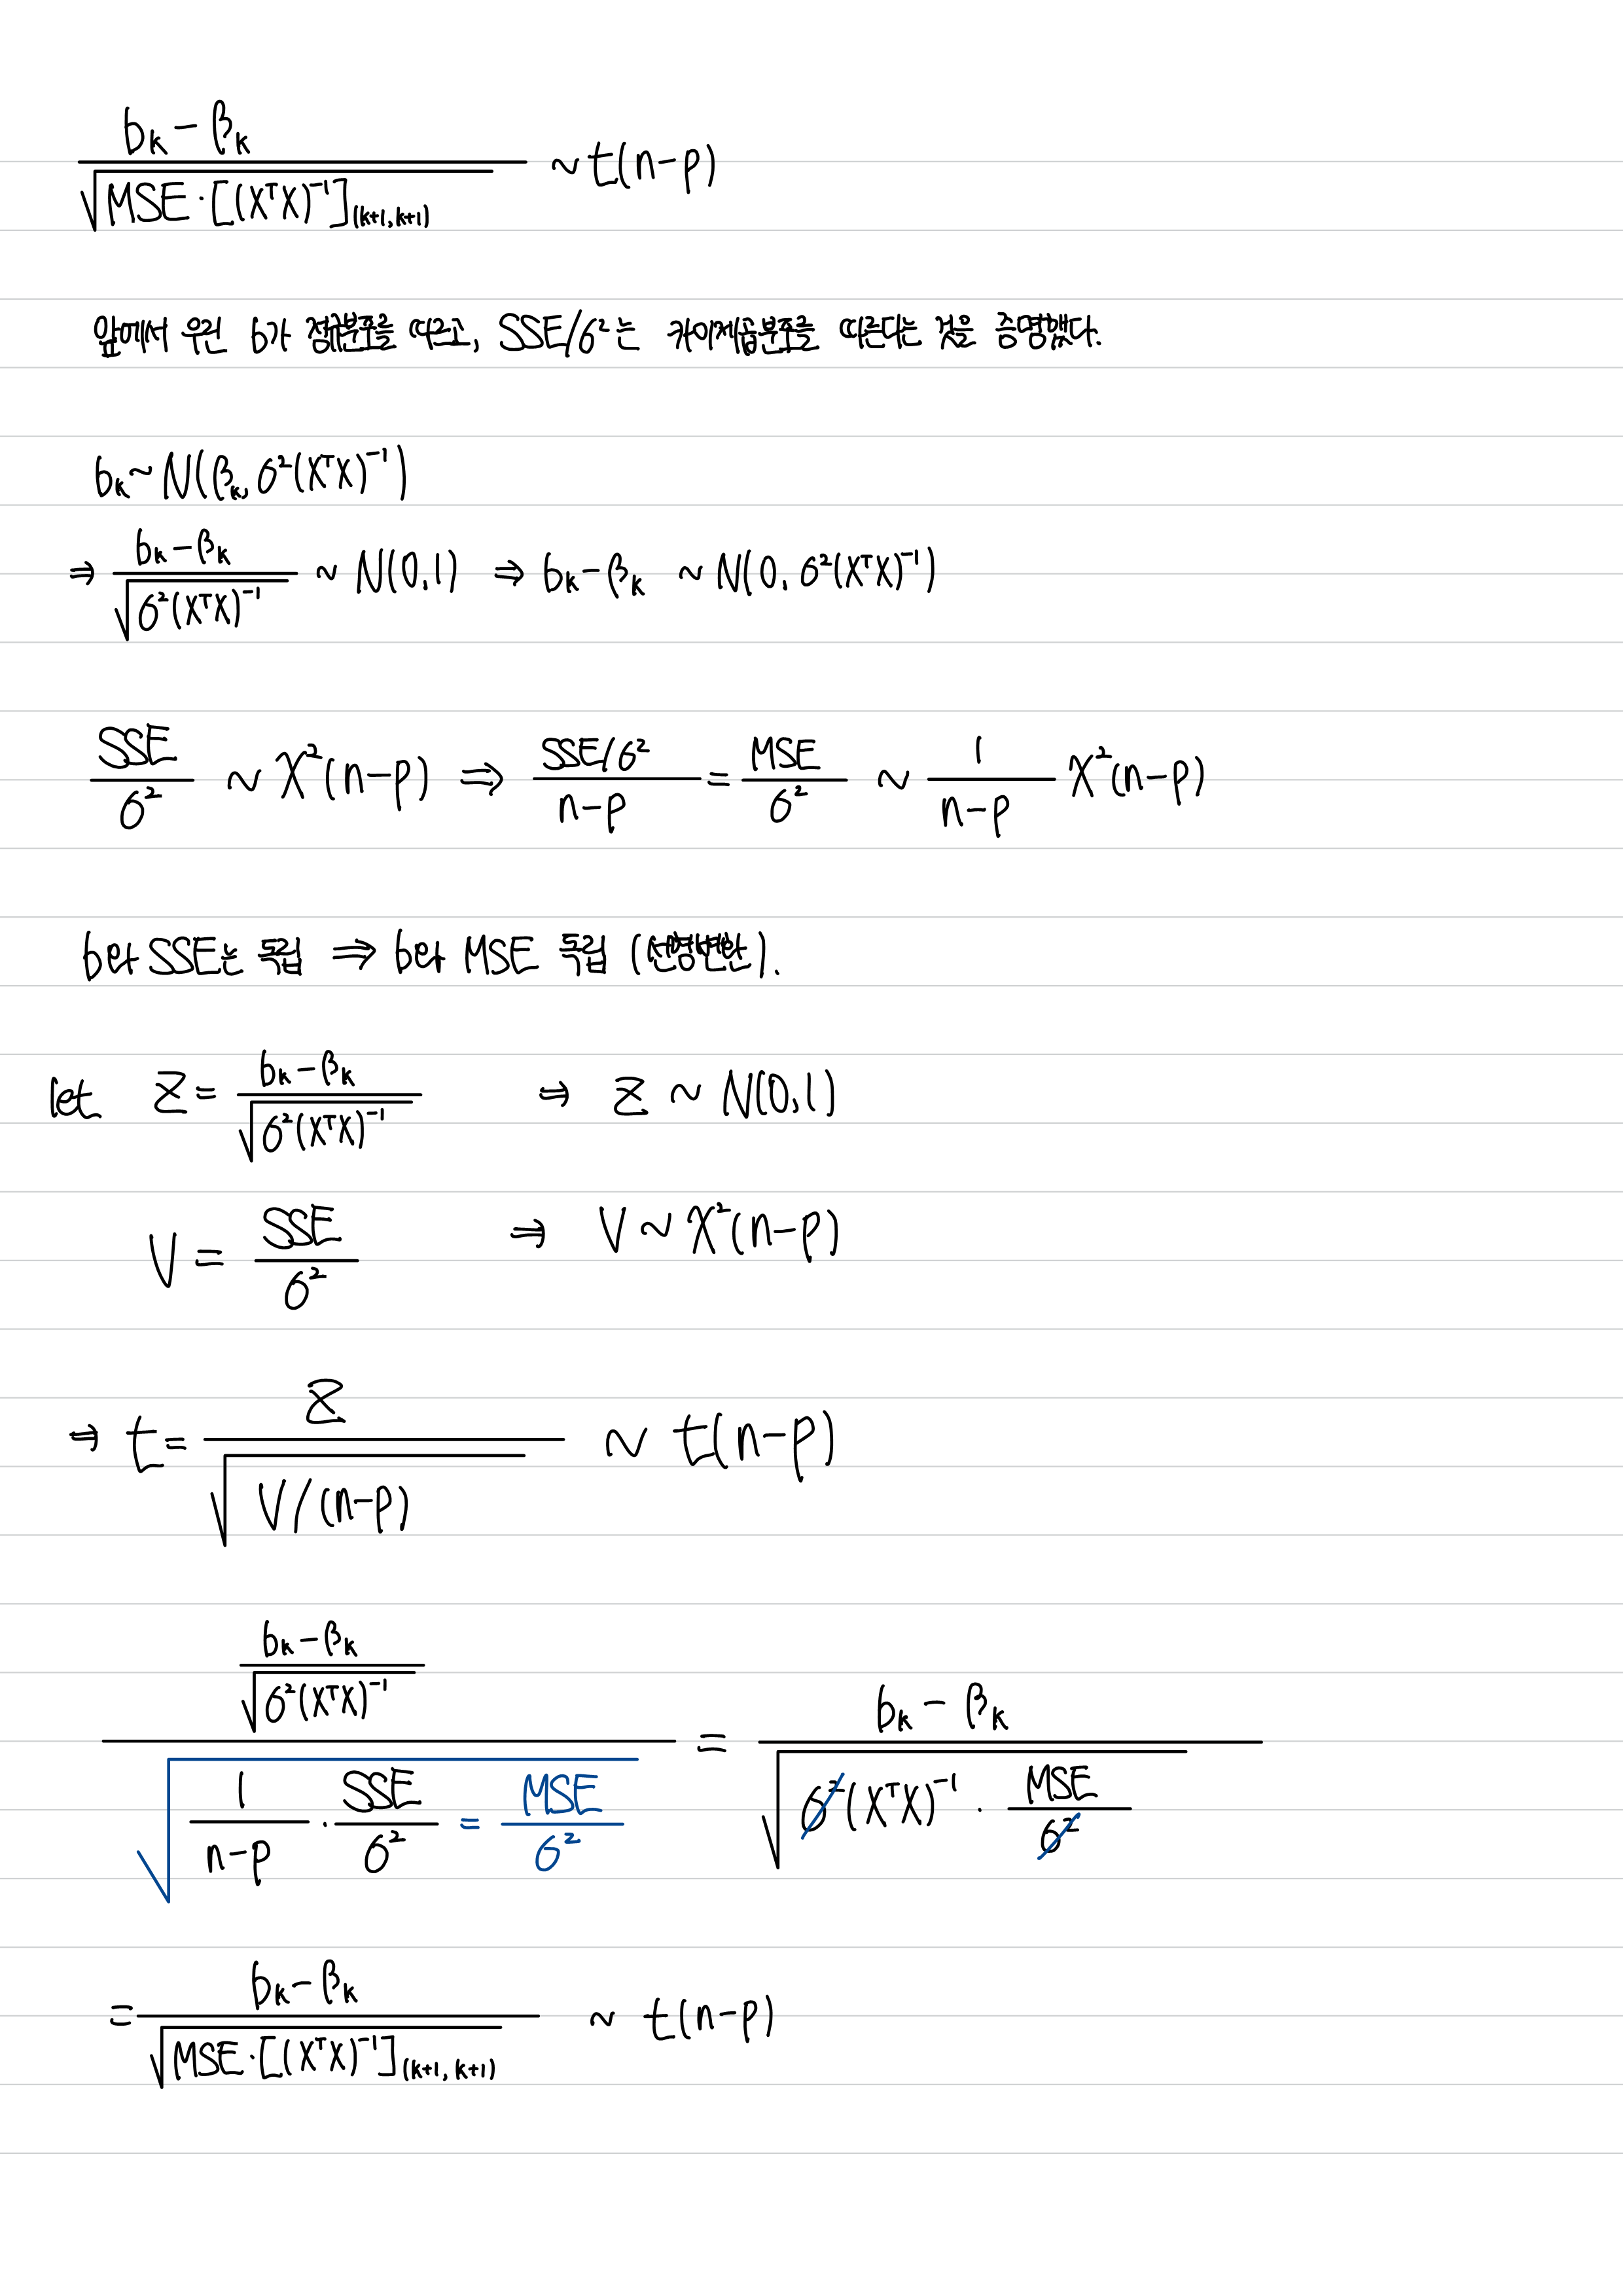 (b_k - β_k) / √(MSE · [(XᵀX)⁻¹]_(k+1, k+1)) ~ t(n-p)
앞에서 우린 b가 정규분포를 따르고, SSE/σ²는 카이제곱분포를 따른다는 것을 증명했다.
b_k ~ N(β_k, σ²(XᵀX)⁻¹)
⇒ (b_k - β_k) / √(σ²(XᵀX)⁻¹) ~ N(0, 1) ⇒ b_k - β_k ~ N(0, σ²(XᵀX)⁻¹)
SSE / σ² ~ χ²(n-p) ⇒ (SSE/σ²) / (n-p) = MSE / σ² ~ 1 / (n-p) χ²(n-p)
b와 SSE는 독립 ⇒ b와 MSE 독립 ( ).
let Z = (b_k - β_k) / √(σ²(XᵀX)⁻¹) ⇒ Z ~ N(0, 1)
V = SSE / σ² ⇒ V ~ χ²(n-p)
⇒ t = Z / √(V/(n-p)) ~ t(n-p)
((b_k - β_k) / √(σ²(XᵀX)⁻¹)) / √(1/(n-p) · SSE/σ² = MSE/σ²) = (b_k - β_k) / √(σ²(XᵀX)⁻¹ · MSE/σ²)
= (b_k - β_k) / √(MSE · [(XᵀX)⁻¹]_(k+1, k+1)) ~ t(n-p)